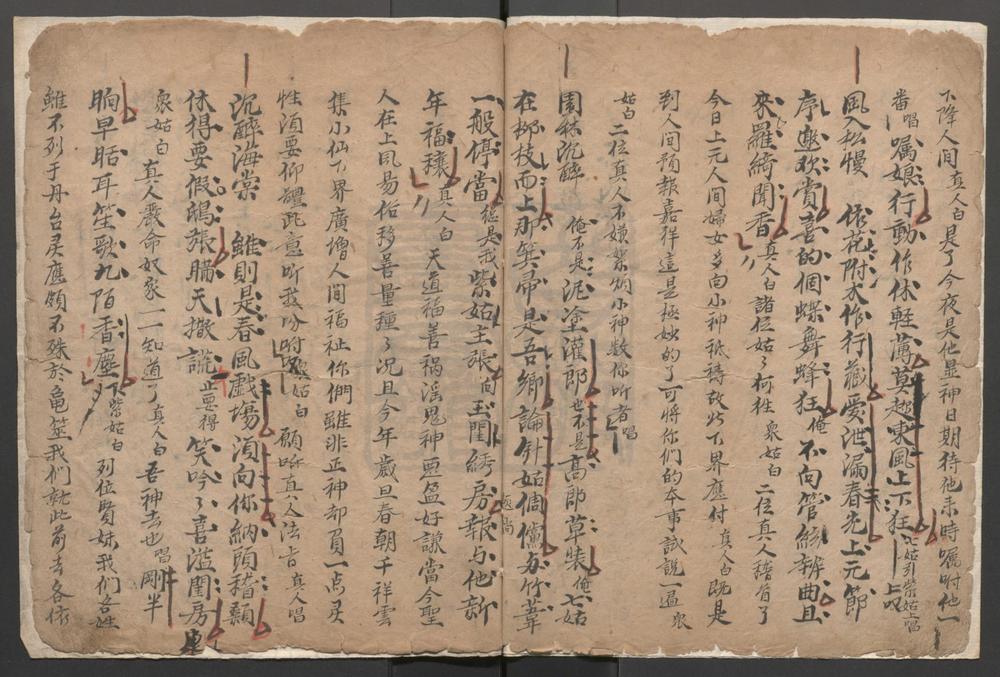 下降人间真人白是了今夜是他显神日期待他来時嘱咐他一
番唱嘱娘行動作休軽薄莫趂東風上下狂七姑引紫姑上唱上唆
風入松慢 依花附木作行藏爱泄漏春光上元節
序邀欢賞喜的個蝶舞蜂狂俺不向管絃辨曲且
來羅綺聞香真人白諸位姑了何姓衆姑白二位真人諸有了
今日上元人间婦女多向小神祗禱故此下界應付真人白既是
到人间預報嘉祥這是極妙的了可将你们的本事試說一遍衆
姑白二位真人不嫌絮煩小神数你听者唱
園林沉醉 俺不是泥塗灌郎也不是高郎草裝俺七姑
在柳枝而上那箕帚是吾鄉論針姑倜儻和竹葦
一般停當総是我紫姑主張向玉閨綉房報与他新
年福穰真人白天道福善禍淫鬼神惡盈好謙當今聖
人在上風易俗移善量種了况且今年歲旦春朝千祥雲
集小仙下界廣增人间福祉你們雖非正神却有一点灵
性須要仰體此意听我吩咐衆姑白願听真人法旨真人唱
沉醉海棠 雖則是春風戯塲須向你納頭稽顙
休得要假鴟張瞞天撒謊止要得笑吟了喜溢閨房
衆姑白真人嚴命奴家一一知道了真人白吾神去也唱剛半
晌早聒耳笙歌九陌香塵下紫姑白列位賢妹我们各姓
雖不列于丹台灵應頗不殊於亀筮我們就此前去各依